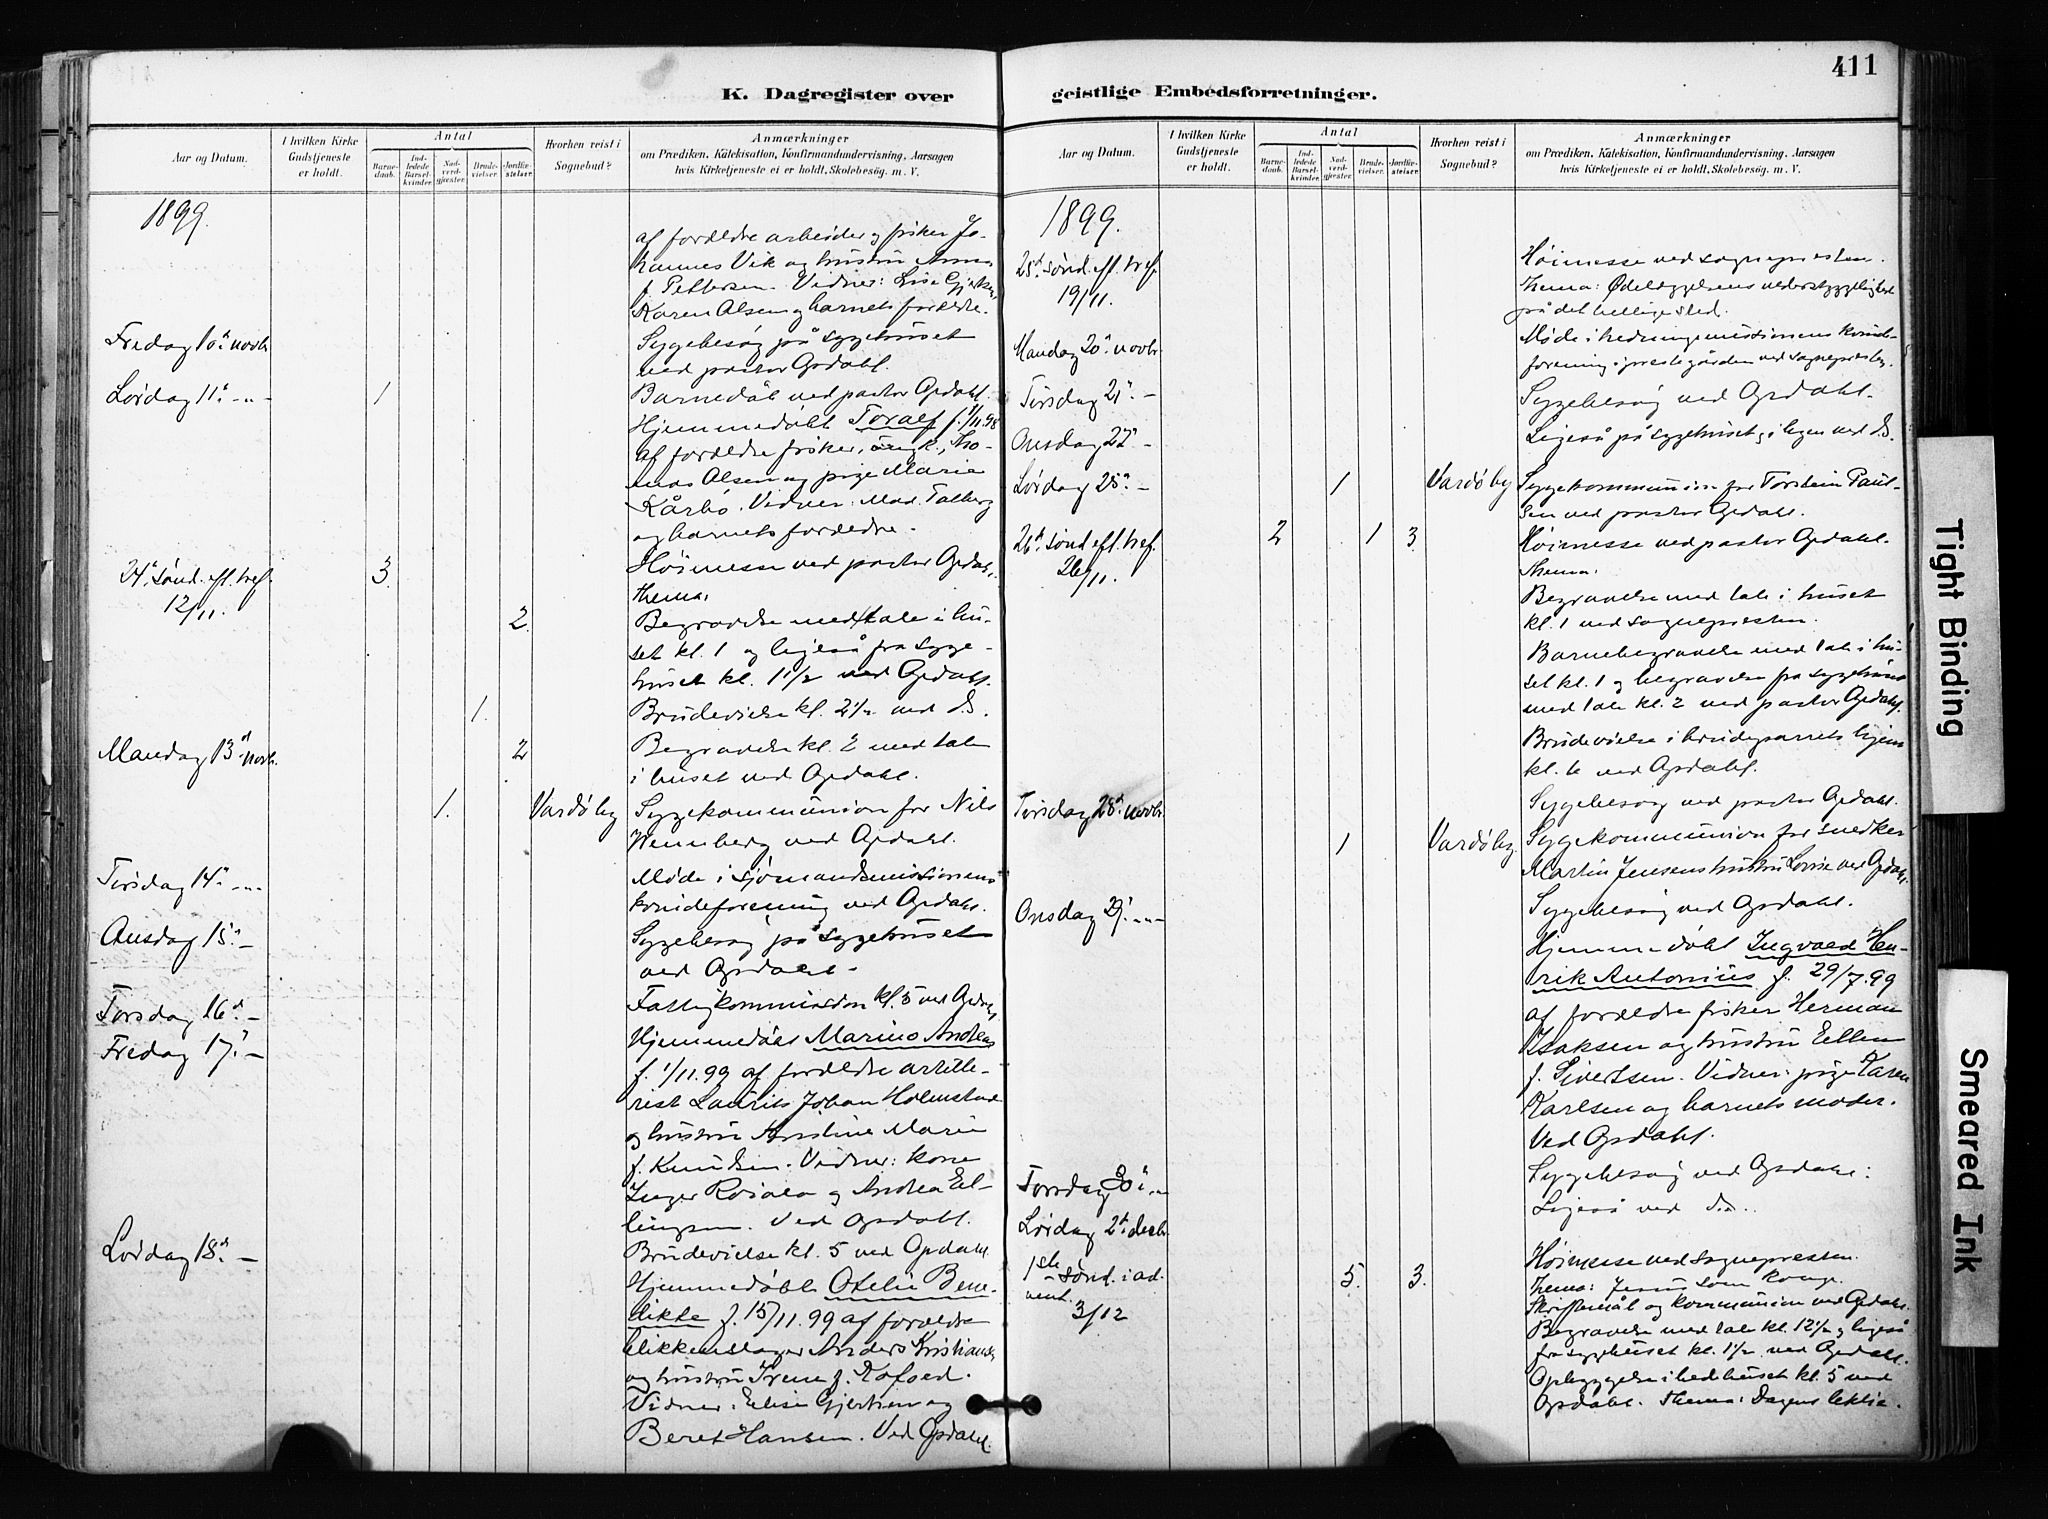 411
K. Dagregister over
geistlige Embedsforretninger.
Aar og Datum.
I hvilken Kirke Gudstjeneste er holdt.
Antal
Barnedaab.
Indledede Barselkvinder.
Nadverdgjester.
Brudevielser.
Jordfæstelser.
Hvorhen reist i Sognebud?
Anmærkninger
om Prædiken, Katekisation, Konfirmandundervisning, Aarsagen
hvis Kirketjeneste ei er holdt, Skolebesøg. m. V.
1899.
af forældre arbeider og fisker Jo-
hannes Vik og hustru Anna
f. Pettersen. Vidner: Lise Gjertsen
Karen Olsen og barnets forældre.
Fredag 10de novbr Sygebesøg på sygehuset
ved pastor Opdahl.
Lørdag 11te -"- 1 Barnedåb ved pastor Opdahl.
Hjemmedøbt Toralf f. 1/11.98
af forældre fisker, ungk., Tho-
mas Olsen og pige Marie
Kårbø. Vidner: Mad. Falberg
og barnets forældre.
24de sønd. eft. tref. 3. Høimesse ved pastor Opdahl.
12/11. thema:
2. Begravelse med tale i hu-
set kl. 1 og ligeså fra syge-
huset kl. 1 1/2 ved Opdahl.
1. Brudevielse kl. 2 1/2 ved ds.
Mandag 13de novbr. 2 Begravelse kl. 2 med tale
i huset ved Opdahl.
1. Vardø by Sygekommunion for Nils
Wennberg ved Opdahl.
Tirsdag 14de -"- Møde i sjømandsmissionens
kvindeforening ved Opdahl.
Onsdag 15de - Sygebesøg på sygehuset
ved Opdahl -
Torsdag 16de - Fattigkommission kl. 5 ved Opdahl
Fredag 17de - Hjemmedøbt Marino Andreas
f. 1/11.99 af forældre artille-
rist Laurits Johan Holmstad
og hustru Kristine Marie
f. Knudsen. Vidner: kone
Inger Rosalia og Andrea El-
lingsen. Ved Opdahl.
Lørdag 18de - Brudevielse kl. 5 ved Opdahl.
Hjemmedøbt Otelie Bene-
dikte f. 15/11.99 af forældre
blikkenslager Anders Kristians.
og hustru Irene f. Kofoed.
Vidner: Elise Gjertsen og
Beret Hansen. Ved Opdahl.
Aar og Datum.
I hvilken Kirke Gudstjeneste er holdt.
Antal
Barnedaab.
Indledede Barselkvinder.
Nadverdgjester.
Brudevielser.
Jordfæstelser.
Hvorhen reist i Sognebud?
Anmærkninger
om Prædiken, Katekisation, Konfirmandundervisning, Aarsagen
hvis Kirketjeneste ei er holdt, Skolebesøg. m. V.
1899.
25de sønd. eft. tref. Høimesse ved sognepresten.
19/11. Thema: Ødelæggelsens vederstyggelighed
på det hellige sted.
Mandag 20de novbr. Møde i hedningemissionens kvinde-
forening i prestegården ved sognepresten.
Tirsdag 21de - Sygebesøg ved Opdahl.
Onsdag 22de - Ligeså på sygehuset og i byen ved ds.
Lørdag 25de - 1 Vardø by Sygekommunion for Torstein Paul-
sen ved pastor Opdahl.
26de sønd. eft. tref. 2 1 3. Høimesse ved pastor Opdahl.
26/11. thema:
Begravelse med tale i huset
kl. 1 ved sognepresten.
Barnebegravelse med tale i hu-
set kl. 1 og begravelse fra sygehuset
med tale kl. 2 ved pastor Opdahl.
Brudevielse i brudeparrets hjem
kl. 6 ved Opdahl.
Tirsdag 28de novbr. Sygebesøg ved pastor Opdahl.
1 Vardø by. Sygekommunion for snedker
Martin Jensens hustru Lovise ved Opdahl.
Onsdag 29de -"- Sygebesøg ved Opdahl.
Hjemmedøbt Ingvald Hen-
rik Antonius f. 29/7.99
af forældre fisker Herman
Isaksen og hustru Ellen
f. Sivertsen. Vidner: pige Karen
Karlsen og barnets moder.
Ved Opdahl.
Torsdag 30te -"- Sygebesøg ved Opdahl.
Lørdag 2den decbr. Ligeså ved ds.
1ste sønd. i ad- 5. 3. Høimesse ved sognepresten.
vent. Thema: Jesus som konge.
3/12 Skriftemål og kommunion ved Opdahl.
Begravelse med tale kl. 12 1/2 og ligeså
fra sygehuset kl. 1 1/2 ved Opdahl.
Opbyggelse i bedehuset kl. 5 ved
Opdahl. Thema: Dagens lektie.
Tight Binding
Smeared Ink